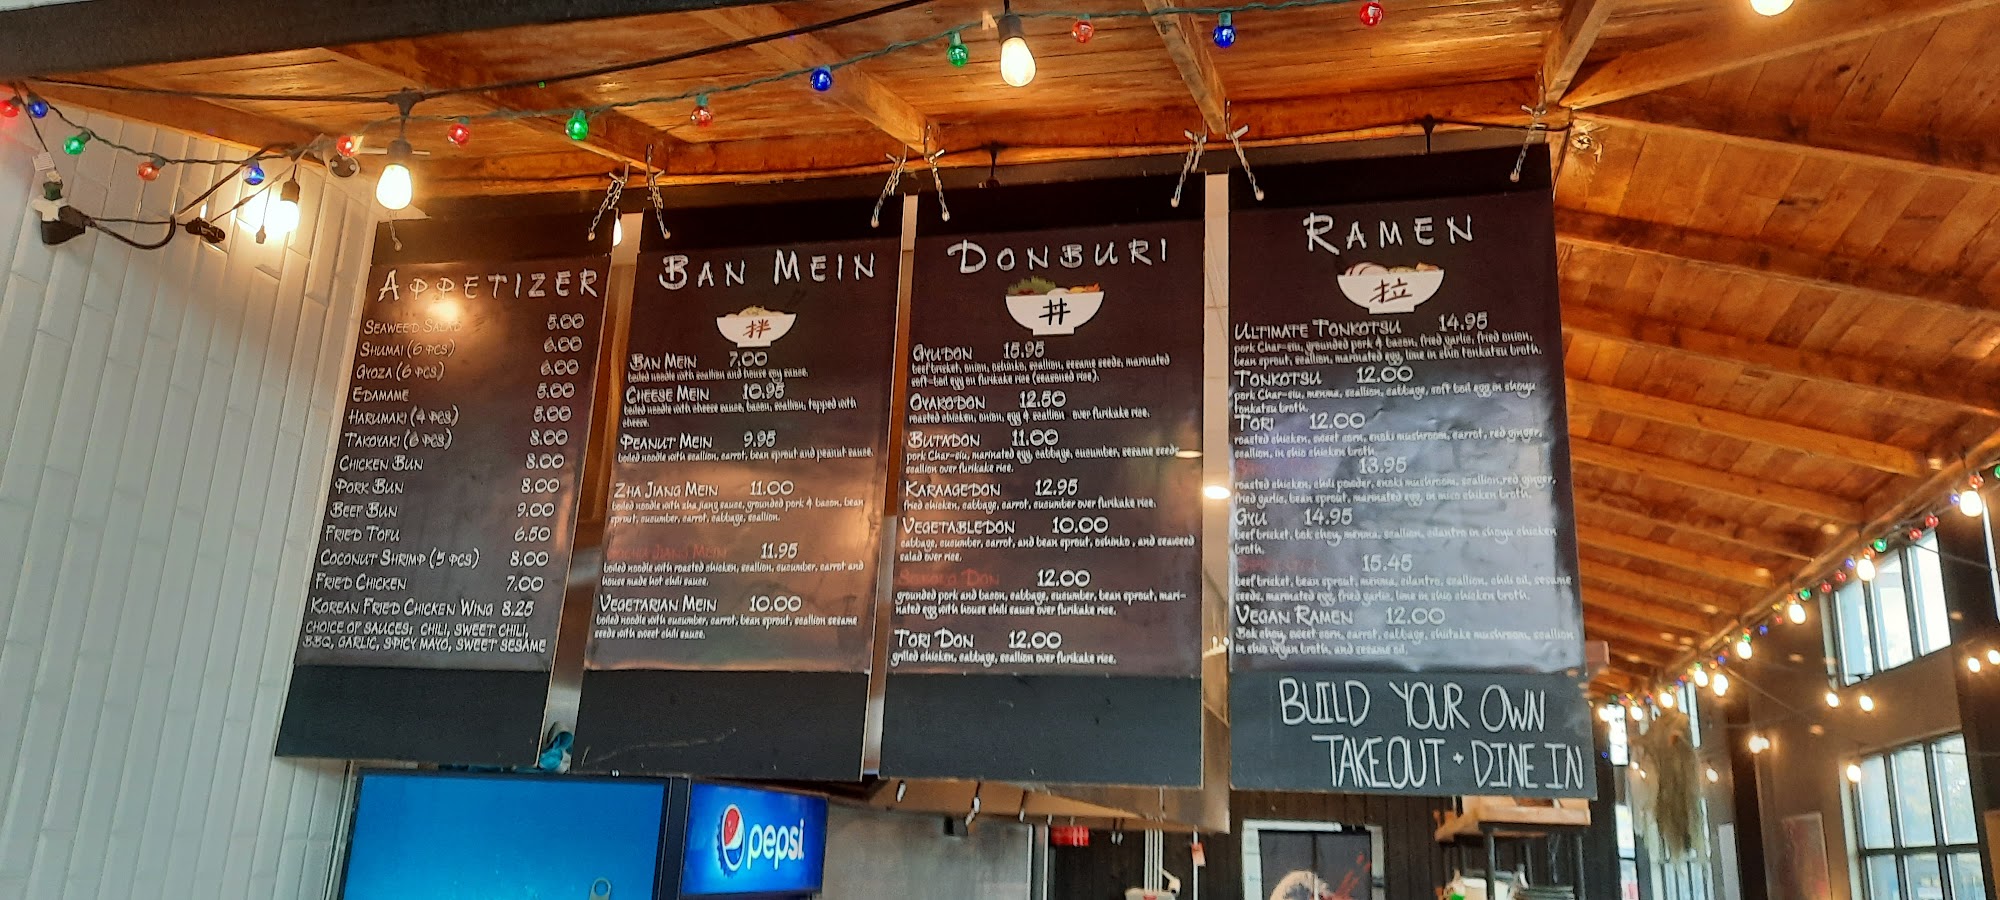 APPETIZER
SEAWEED SALAD 5.00
SHUMAI (6 PCS) 6.00
GYOZA (6 PCS) 6.00
EDAMAME 5.00
HARUMAKI (4 PCS) 5.00
TAKOYAKI (6 PCS) 8.00
CHICKEN BUN 8.00
PORK BUN 8.00
BEEF BUN 9.00
FRIED TOFU 6.50
COCONUT SHRIMP (5 PCS) 8.00
FRIED CHICKEN 7.00
KOREAN FRIED CHICKEN WING 8.25
CHOICE OF SAUCES: CHILI, SWEET CHILI,
BBQ, GARLIC, SPICY MAYO, SWEET SESAME
BAN MEIN
拌
BAN MEIN 7.00
boiled noodle with scallion and house soy sauce.
CHEESE MEIN 10.95
boiled noodle with cheese sauce, bacon, scallion, topped with
cheese.
PEANUT MEIN 9.95
boiled noodle with scallion, carrot, bean sprout and peanut sauce.
ZHA JIANG MEIN 11.00
boiled noodle with zha jiang sauce, grounded pork & bacon, bean
sprout, cucumber, carrot, cabbage, scallion.
JIANG MEIN 11.95
boiled noodle with roasted chicken, scallion, cucumber, carrot and
house made hot chili sauce.
VEGETARIAN MEIN 10.00
boiled noodle with cucumber, carrot, bean sprout, scallion sesame
seeds with sweet chili sauce.
DONBURI
丼
GYUDON 15.95
beef brisket, onion, oshinko, scallion, sesame seeds, marinated
soft-boil egg on furikake rice (seasoned rice).
OYAKODON 12.50
roasted chicken, onion, egg & scallion over furikake rice.
BUTADON 11.00
pork Char-siu, marinated egg, cabbage, cucumber, sesame seeds
scallion over furikake rice.
KARAAGEDON 12.95
fried chicken, cabbage, carrot, cucumber over furikake rice.
VEGETABLEDON 10.00
cabbage, cucumber, carrot, and bean sprout, oshinko, and seaweed
salad over rice.
DON 12.00
grounded pork and bacon, cabbage, cucumber, bean sprout, mari-
nated egg with house chili sauce over furikake rice.
TORI DON 12.00
grilled chicken, cabbage, scallion over furikake rice.
RAMEN
拉
ULTIMATE TONKOTSU 14.95
pork Char-siu, grounded pork & bacon, fried garlic, fried onion,
bean sprout, scallion, marinated egg, lime in shio tonkatsu broth.
TONKOTSU 12.00
pork Char-siu, menma, scallion, cabbage, soft boil egg in shoyu
tonkatsu broth.
TORI 12.00
roasted chicken, sweet corn, enoki mushroom, carrot, red ginger,
scallion, in shio chicken broth.
13.95
roasted chicken, chili powder, enoki mushroom, scallion, red ginger,
fried garlic, bean sprout, marinated egg, in miso chiken broth.
GYU 14.95
beef brisket, bok choy, menma, scallion, cilantro in shoyu chicken
broth.
15.45
beef brisket, bean sprout, menma, cilantro, scallion, chili oil, sesame
seeds, marinated egg, fried garlic, lime in shio chicken broth.
VEGAN RAMEN 12.00
Bok choy, sweet corn, carrot, cabbage, shiitake mushroom, scallion
in shio vegan broth, and sesame oil.
BUILD YOUR OWN
TAKEOUT + DINE IN
pepsi